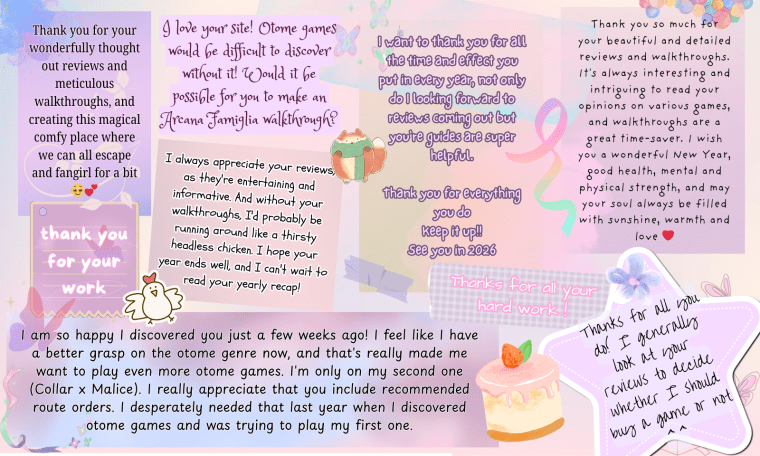 Thank you for your
wonderfully thought
out reviews and
meticulous
walkthroughs, and
creating this magical
comfy place where
we can all escape
and fangirl for a bit
🥹💕
I love your site! Otome games
would be difficult to discover
without it! Would it be
possible for you to make an
Arcana Famiglia walkthrough?
I want to thank you for all
the time and effect you
put in every year, not only
do I looking forward to
reviews coming out but
you're guides are super
helpful.
Thank you for everything
you do
Keep it up!!
See you in 2026
Thank you so much for
your beautiful and detailed
reviews and walkthroughs.
It's always interesting and
intriguing to read your
opinions on various games,
and walkthroughs are a
great time-saver. I wish
you a wonderful New Year,
good health, mental and
physical strength, and may
your soul always be filled
with sunshine, warmth and
love ❤️
I always appreciate your reviews,
as they're entertaining and
informative. And without your
walkthroughs, I'd probably be
running around like a thirsty
headless chicken. I hope your
year ends well, and I can't wait to
read your yearly recap!
thank you
for your
work
Thanks for all your
hard work!
I am so happy I discovered you just a few weeks ago! I feel like I have
a better grasp on the otome genre now, and that's really made me
want to play even more otome games. I'm only on my second one
(Collar x Malice). I really appreciate that you include recommended
route orders. I desperately needed that last year when I discovered
otome games and was trying to play my first one.
Thanks for all you
do! I generally
look at your
reviews to decide
whether I should
buy a game or not
^^